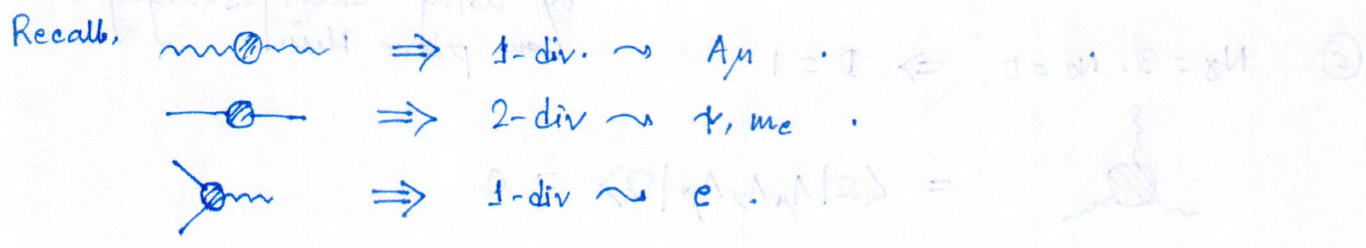 Recall, ⇒ 1-div. ~ Aμ .
⇒ 2-div ~ ψ, me .
⇒ 1-div ~ e .